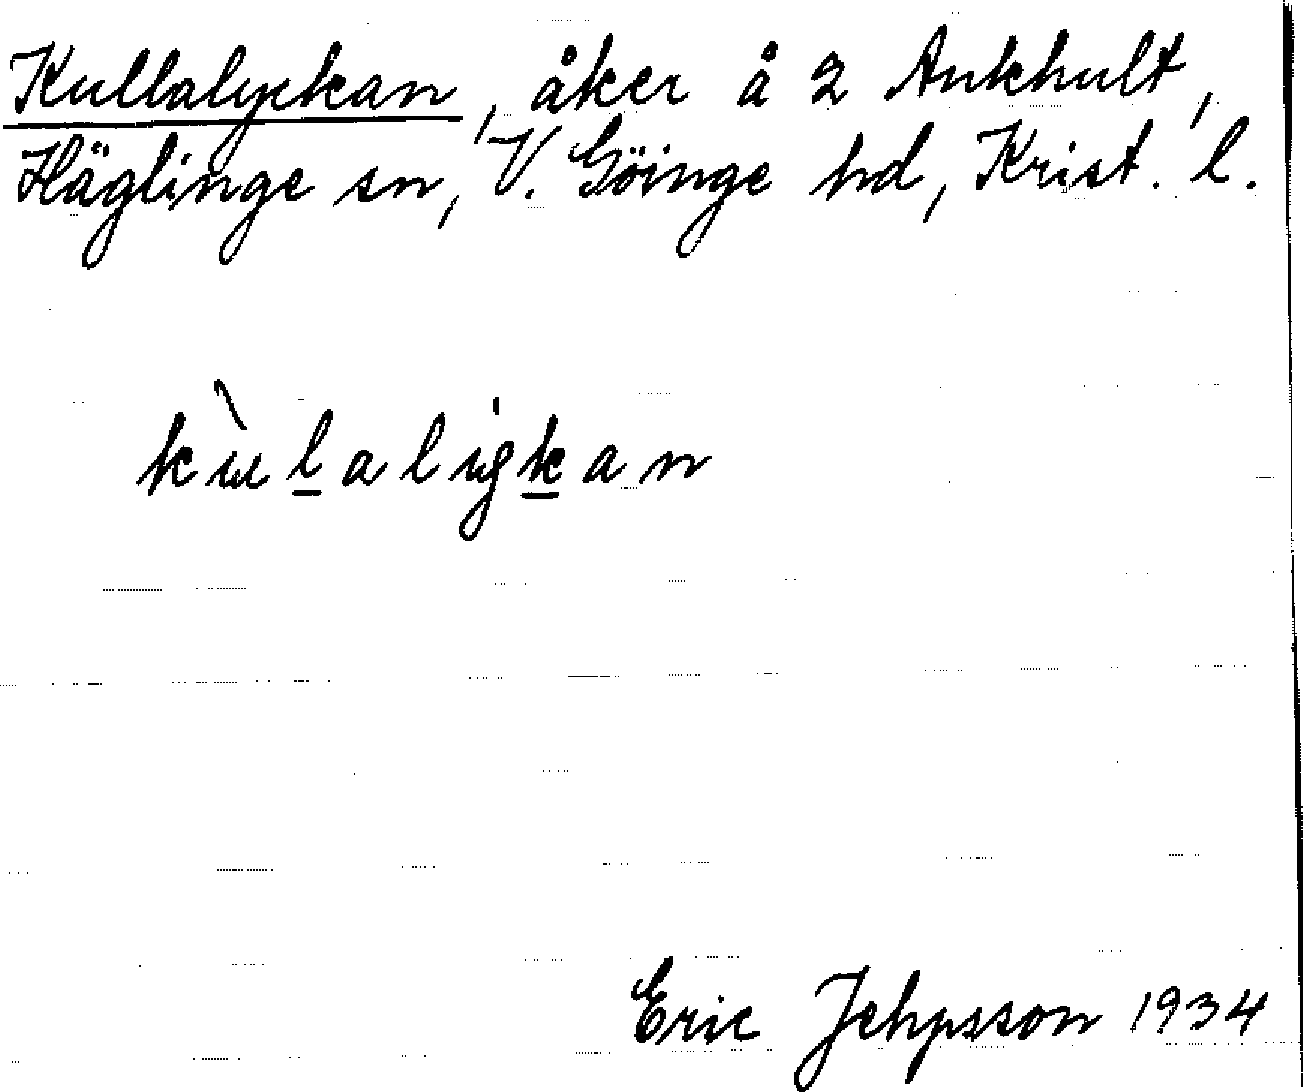 Kullalyckan, åker å 2 Ankhult,
Häglinge sn, V. Göinge hd, Krist. l.
kùlalykan
Eric Jehpsson 1934